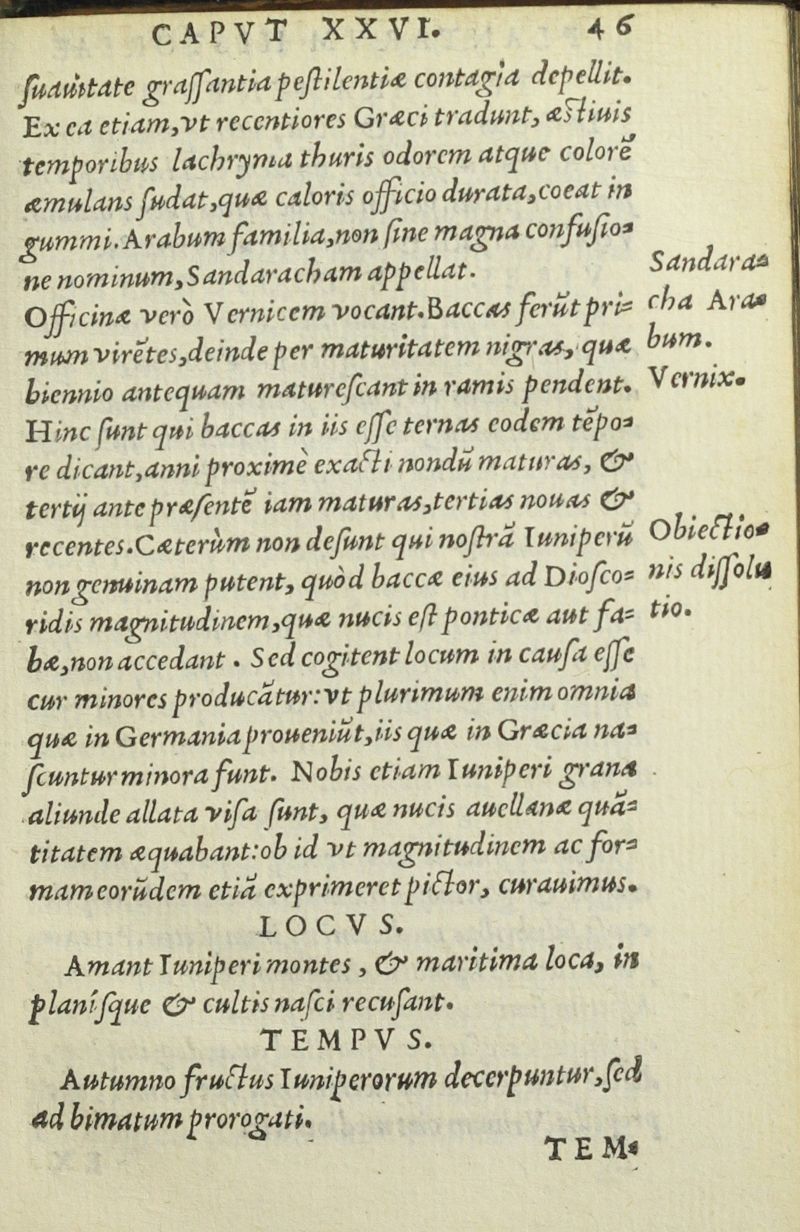 CAPVT XXVI. 46
ſuauitate graſſantia peſtilentiæ contagia depellit.
Ex ea etiam, vt recentiores Græci tradunt, æſtiuis
temporibus lachryma thuris odorem atque colorẽ
æmulans ſudat, quæ caloris officio durata, coeat in
gummi. Arabum familia, non ſine magna confuſio-
ne nominum, Sandaracham appellat.
Officinæ verò Vernicem vocant. Baccas ferũt pri-
mum virẽtes, deinde per maturitatem nigras, quæ
biennio antequam matureſcant in ramis pendent.
Hinc ſunt qui baccas in iis eſſe ternas eodem tẽpo-
re dicant, anni proximè exacti nondũ maturas, &
tertij ante præſentẽ iam maturas, tertias nouas &
recentes. Cæterùm non deſunt qui noſtrã Iuniperũ
non genuinam putent, quòd baccæ eius ad Dioſco-
ridis magnitudinem, quæ nucis eſt ponticæ aut fa-
bæ, non accedant. Sed cogitent locum in cauſa eſſe
cur minores producãtur: vt plurimum enim omnia
quæ in Germania proueniũt, iis quæ in Græcia na-
ſcuntur minora ſunt. Nobis etiam Iuniperi grana
aliunde allata viſa ſunt, quæ nucis auellanæ quã-
titatem æquabant: ob id vt magnitudinem ac for-
mam eorũdem etiã exprimeret pictor, curauimus.
LOCVS.
Amant Iuniperi montes, & maritima loca, in
planíſque & cultis naſci recuſant.
TEMPVS.
Autumno fructus Iuniperorum decerpuntur, ſed
ad bimatum prorogati.
TEM-
Sandara-
cha Ara-
bum.
Vernix.
Obiectio-
nis diſſolu
tio.